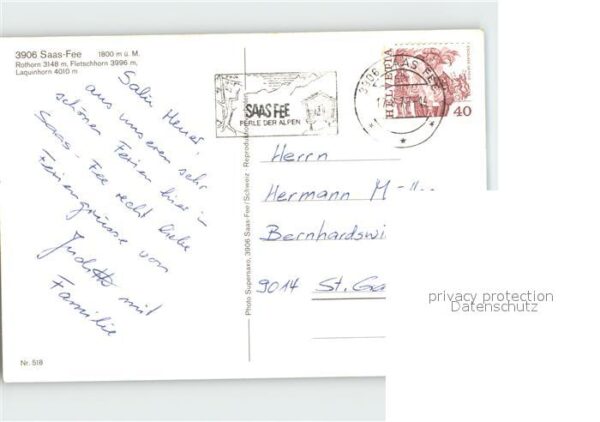 3906 Saas-Fee 1800 m ü. M.
Rothorn 3148 m, Fletschhorn 3996 m,
Laquinhorn 4010 m
Salü
aus unseren sehr
schönen Ferien hier in
Saas-Fee recht liebe
Feriengrüsse von
Judith mit
Familie
Nr. 518
Photo Supersaxo, 3906 Saas-Fee/Schweiz
SAAS FEE
PERLE DER ALPEN
3906 SAAS FEE
HELVETIA
40
Herrn
Hermann M
Bernhardswi
9014 St. Ga
privacy protection
Datenschutz